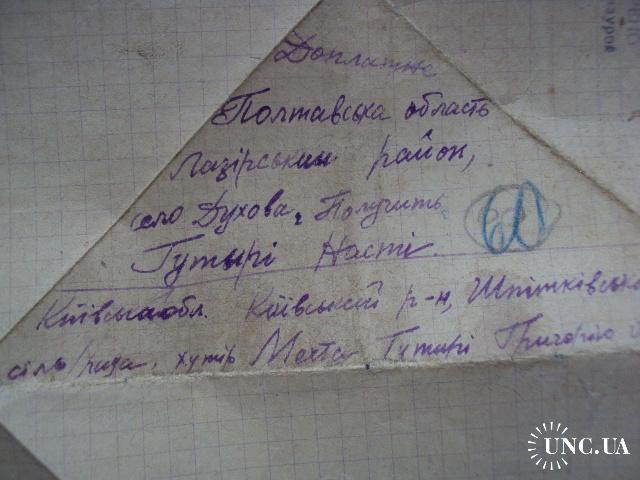 Доплатне
Полтавська область
Лазірський район,
село Духова, Получить
Гутирі Насті.
60
Київська обл. Київський р-н, Шпітьківська
сіль/рада, хутір Мечта Гутирі Григорію
UNC.UA